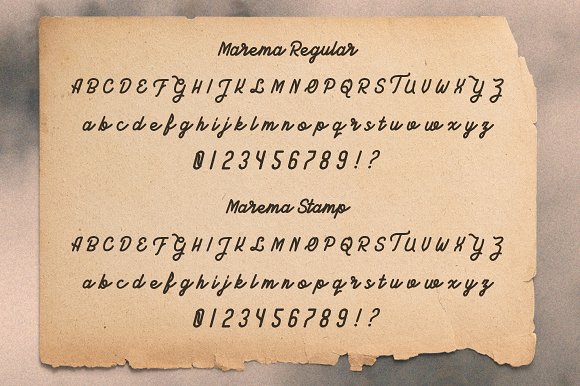 Marema Regular
A B C D E F G H I J K L M N O P Q R S T U V W X Y Z
a b c d e f g h i j k l m n o p q r s t u v w x y z
0 1 2 3 4 5 6 7 8 9 ! ?
Marema Stamp
A B C D E F G H I J K L M N O P Q R S T U V W X Y Z
a b c d e f g h i j k l m n o p q r s t u v w x y z
0 1 2 3 4 5 6 7 8 9 ! ?